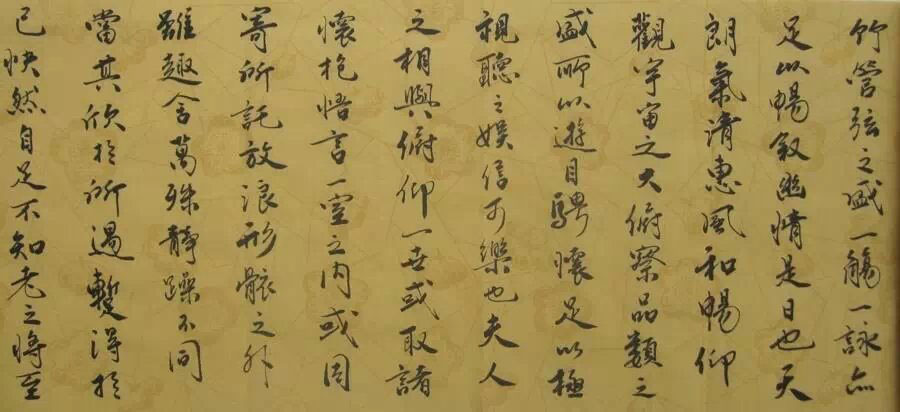 竹管弦之盛一觴一詠亦
足以暢敘幽情是日也天
朗氣清惠風和暢仰
觀宇宙之大俯察品類之
盛所以遊目騁懷足以極
視聽之娛信可樂也夫人
之相與俯仰一世或取諸
懷抱悟言一室之內或因
寄所託放浪形骸之外
雖趣舍萬殊靜躁不同
當其欣於所遇暫得於
己快然自足不知老之將至